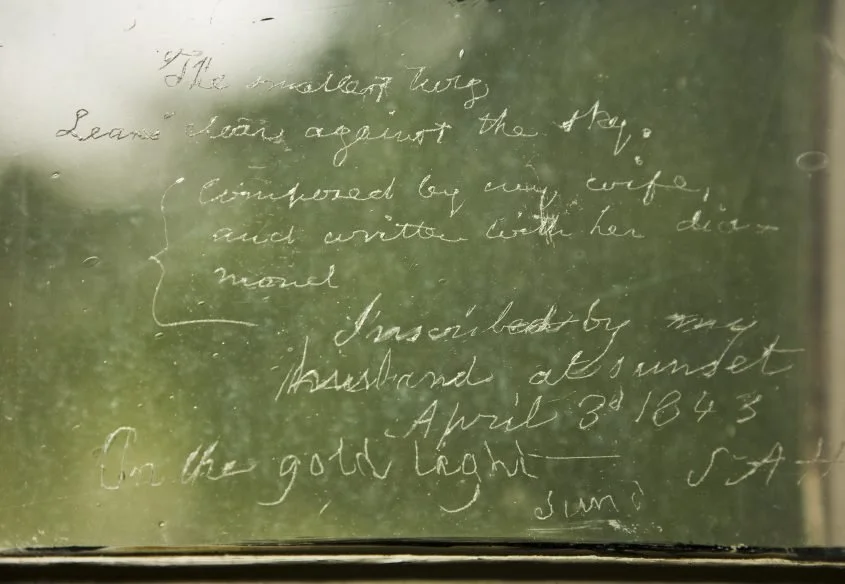 The smallest twig
Leans clear against the sky.
Composed by my wife,
and written with her dia-
mond
Inscribed by my
husband at sunset
April 3d 1843
On the gold light—
S A H